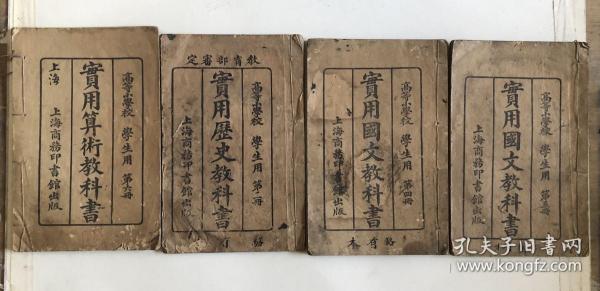 高等小學校 學生用 第六冊
實用算術教科書
上海 上海商務印書館出版
教育部審定
高等小學校 學生用 第一冊
實用歷史教科書
上海商務印書館出版
高等小學校 學生用 第四冊
實用國文教科書
上海商務印書館出版
點有本
高等小學校 學生用
實用國文教科書
上海商務印書館出版
孔夫子旧书网
www.kongfz.com